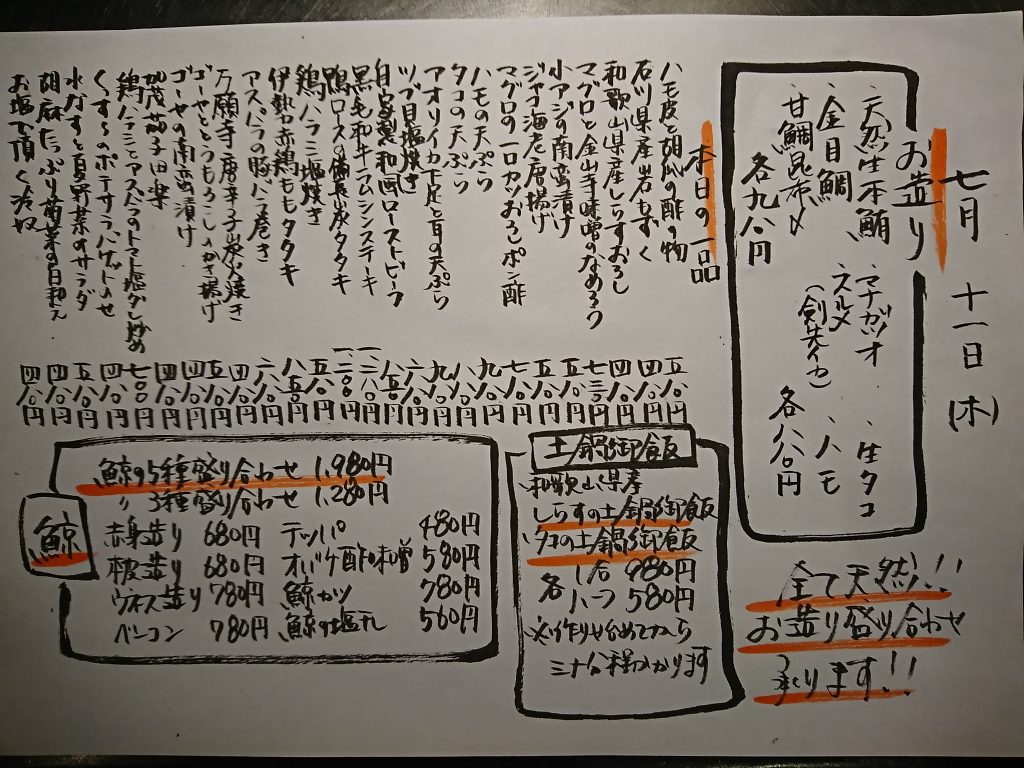 七月 十一日(木)
お造り
天然生本鮪 マナガツオ 生タコ
金目鯛 スルメ(剣先イカ) ハモ
甘鯛昆布〆
各九八〇円 各八八〇円
本日の一品
ハモ皮と胡瓜の酢の物 五八〇円
石川県産岩もずく 四八〇円
和歌山県産しらすおろし 四八〇円
マグロと金山寺味噌のなめろう 七三〇円
小アジの南蛮漬け 五八〇円
ジャコ海老唐揚げ 五八〇円
マグロの一口カツおろしポン酢
ハモの天ぷら
タコの天ぷら
アオリイカ下足と旨の天ぷら
ツブ貝塩焼き
自家製和風ローストビーフ
黒毛和牛ラムシンステーキ
鴨ロースの備長炭タタキ
鶏ハラミ塩焼き
伊勢赤鶏ももタタキ
アスパラの豚バラ巻き
万願寺唐辛子炭火焼き
ゴーヤととうもろこしのかき揚げ
ゴーヤの南蛮漬け
加茂茄子田楽
鶏ハラミとアスパラのトマト塩ダレ炒め 七〇〇円
くずし のポテサラ、バケットのせ 四八〇円
水なすと夏野菜のサラダ 五八〇円
胡麻たっぷり菊菜の白和え 四八〇円
お塩で頂く冷奴 四八〇円
全て天然!!
お造り盛り合わせ
承ります!!
土鍋御飯
和歌山県産
しらすの土鍋御飯
タコの土鍋御飯
各 1合 980円
ハーフ 580円
※作り始めてから
三十分程かかります
鯨
鯨の5種盛り合わせ 1,980円
〃 3種盛り合わせ 1,280円
赤身造り 680円 テッパ 480円
本皮造り 680円 オバケ酢味噌 580円
ウネス造り 780円 鯨カツ 780円
ベーコン 780円 鯨の塩タレ 560円